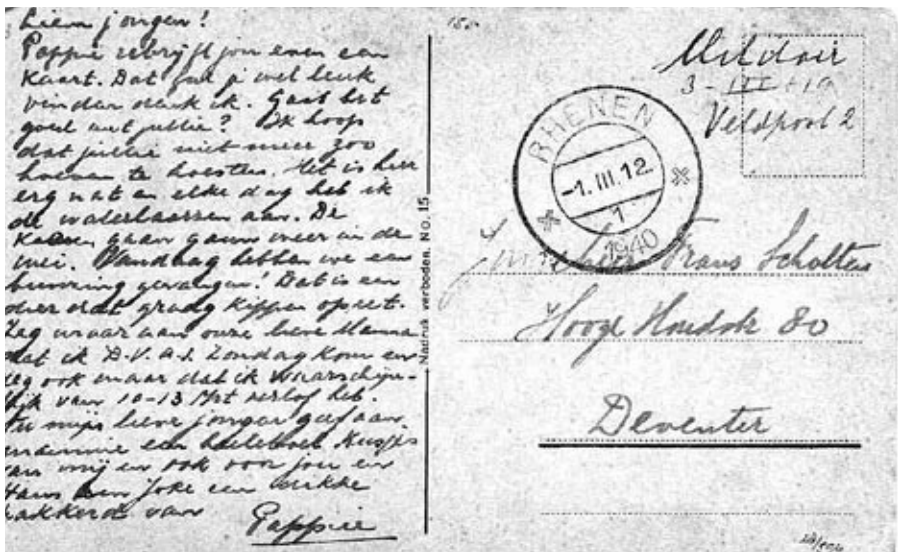 Liem jongen!
Pappie schrijft jou even een
kaart. Dat zal je wel leuk
vinden denk ik. Gaat het
goed met jullie? Ik hoop
dat jullie niet meer zoo
hoeven te hoesten. Het is hier
erg nat en elke dag heb ik
de waterlaarzen aan. De
gaan gauw weer in de
wei. Vandaag hebben we een
gevangen! Dat is een
dier dat graag kippen opeet.
Zeg maar aan onze lieve Mamma
dat ik D.V. a.s. Zondag kom en
zeg ook maar dat ik waarschijn-
lijk van 10-13 Mrt verlof heb.
Nu mijn lieve jongen geef aan
een heeleboel kusjes
van mij en ook voor jou en
Hans en Joke een dikke
pakkerd van
Pappie
Nadruk verboden. No. 15
Militair
Veldpost 2
RHENEN
-1.III.12
1
1940
Frans Scholten
80
Deventer